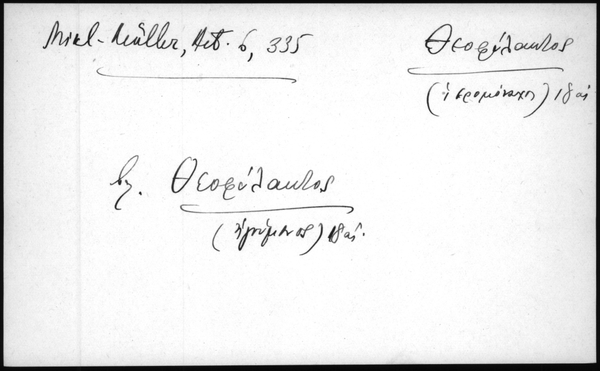 Mikl-Müller, Act. 6, 335
Θεοφύλακτος
(ἱερομόναχος) 18 αἰ
βλ. Θεοφύλακτος
(ἡγούμενος) 18 αἰ.